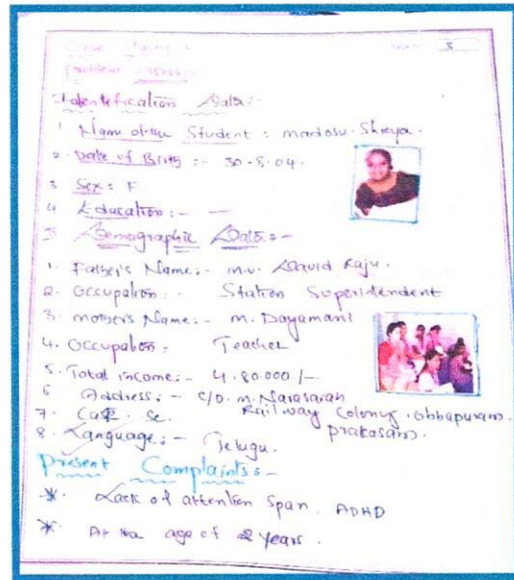 Case
Problem
Identification Data :-
1. Name of the Student : madasu. Shreya.
2. Date of Birth :- 30-8-04.
3 Sex : F
4 Education :- —
Demographic Data :-
1. Father's Name :- m.v. David Raju.
2. Occupation :- Station Superidendent
3. mother's Name :- m. Dayamani
4. Occupation : Teacher
5. Total income :- 4.80.000 /-
6 Address :- C/o. m. Narasaiah
7. Cast. Sc. Railway Colony.
8. Language :- Telugu. prakasam.
Present Complaints :-
*. Lack of attention Span. ADHD
*. At the age of 2 years.